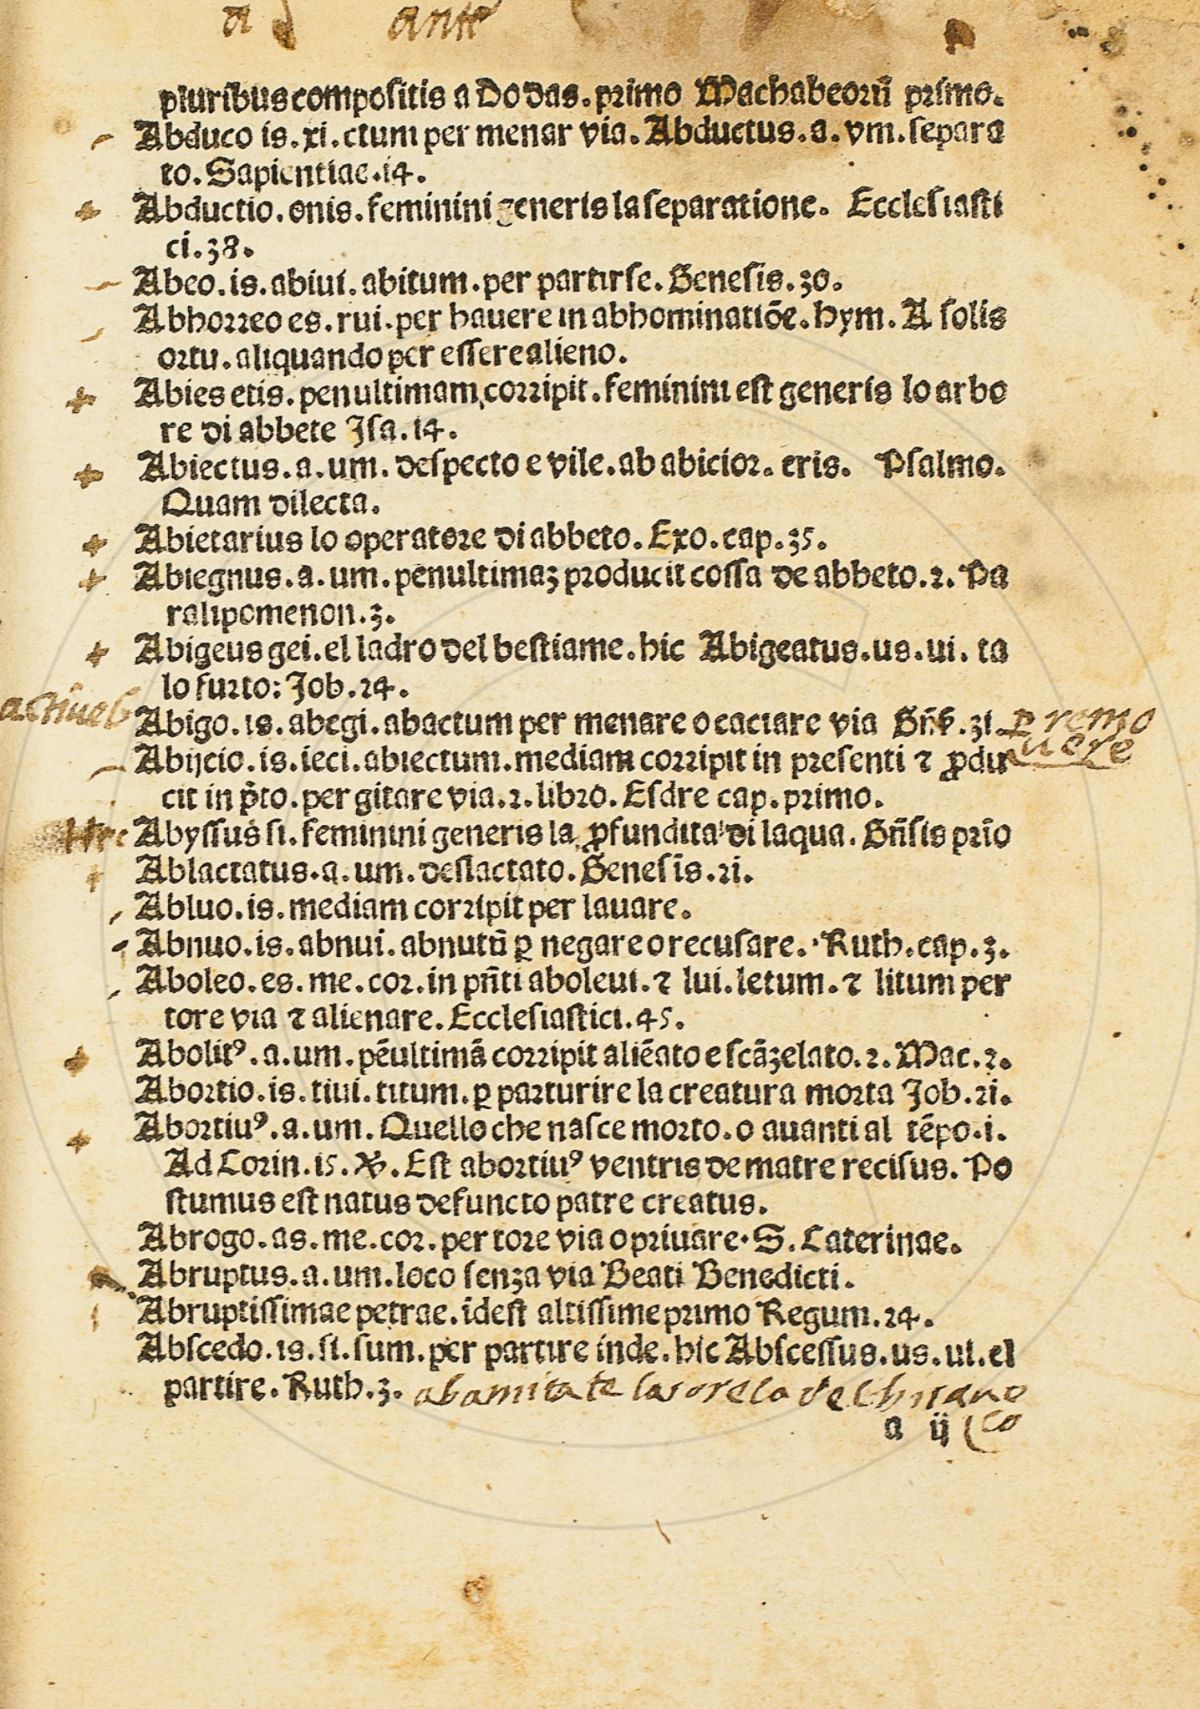 a ante
pluribus compositis a Do das. primo Machabeorū primo.
Abduco is. xi. ctum per menar via. Abductus. a. vm. separa
to. Sapientiae. 14.
Abductio. onis. feminini generis la separatione. Ecclesiasti
ci. 38.
Abeo. is. abiui. abitum. per partirse. Genesis. 30.
Abhorreo es. rui. per hauere in abhominatiōe. hym. A solis
ortu. aliquando per essere alieno.
Abies etis. penultimam corripit. feminini est generis lo arbo
re di abbete Isa. 14.
Abiectus. a. um. despecto e vile. ab abicior. eris. Psalmo.
Quam dilecta.
Abietarius lo operatore di abbeto. Exo. cap. 35.
Abiegnus. a. um. penultimaꝫ producit cossa de abbeto. 2. Pa
ralipomenon. 3.
Abigeus gei. el ladro del bestiame. hic Abigeatus. us. ui. ta
lo furto: Job. 24.
Abigo. is. abegi. abactum per menare o caciare via Gn̄s. 31. ꝑ remo
uere
Abijcio. is. ieci. abiectum. mediam corripit in presenti ⁊ ꝓdu
cit in p̄to. per gitare via. 2. libro. Esdre cap. primo.
Abyssus si. feminini generis la ꝓfundita di laqua. Gn̄sis prīo
Ablactatus. a. um. deslactato. Genesis. 21.
Abluo. is. mediam corripit per lauare.
Abnuo. is. abnui. abnutū ꝑ negare o recusare. Ruth. cap. 3.
Aboleo. es. me. cor. in pn̄ti aboleui. ⁊ lui. letum. ⁊ litum per
tore via ⁊ alienare. Ecclesiastici. 45.
Abolitꝰ. a. um. pēultimā corripit aliēato e scāzelato. 2. Mac. 2.
Abortio. is. tiui. titum. ꝑ parturire la creatura morta Job. 21.
Abortiuꝰ. a. um. Quello che nasce morto. o auanti al tēpo. i.
Ad Corin. 15. Est abortiuꝰ ventris de matre recisus. Po
stumus est natus defuncto patre creatus.
Abrogo. as. me. cor. per tore via o priuare. S. Caterinae.
Abruptus. a. um. loco senza via Beati Benedicti.
Abruptissimae petrae. idest altissime primo Regum. 24.
Abscedo. is. si. sum. per partire inde. hic Abscessus. us. ui. el
partire. Ruth. 3. abamita te la sorela de
a ij co